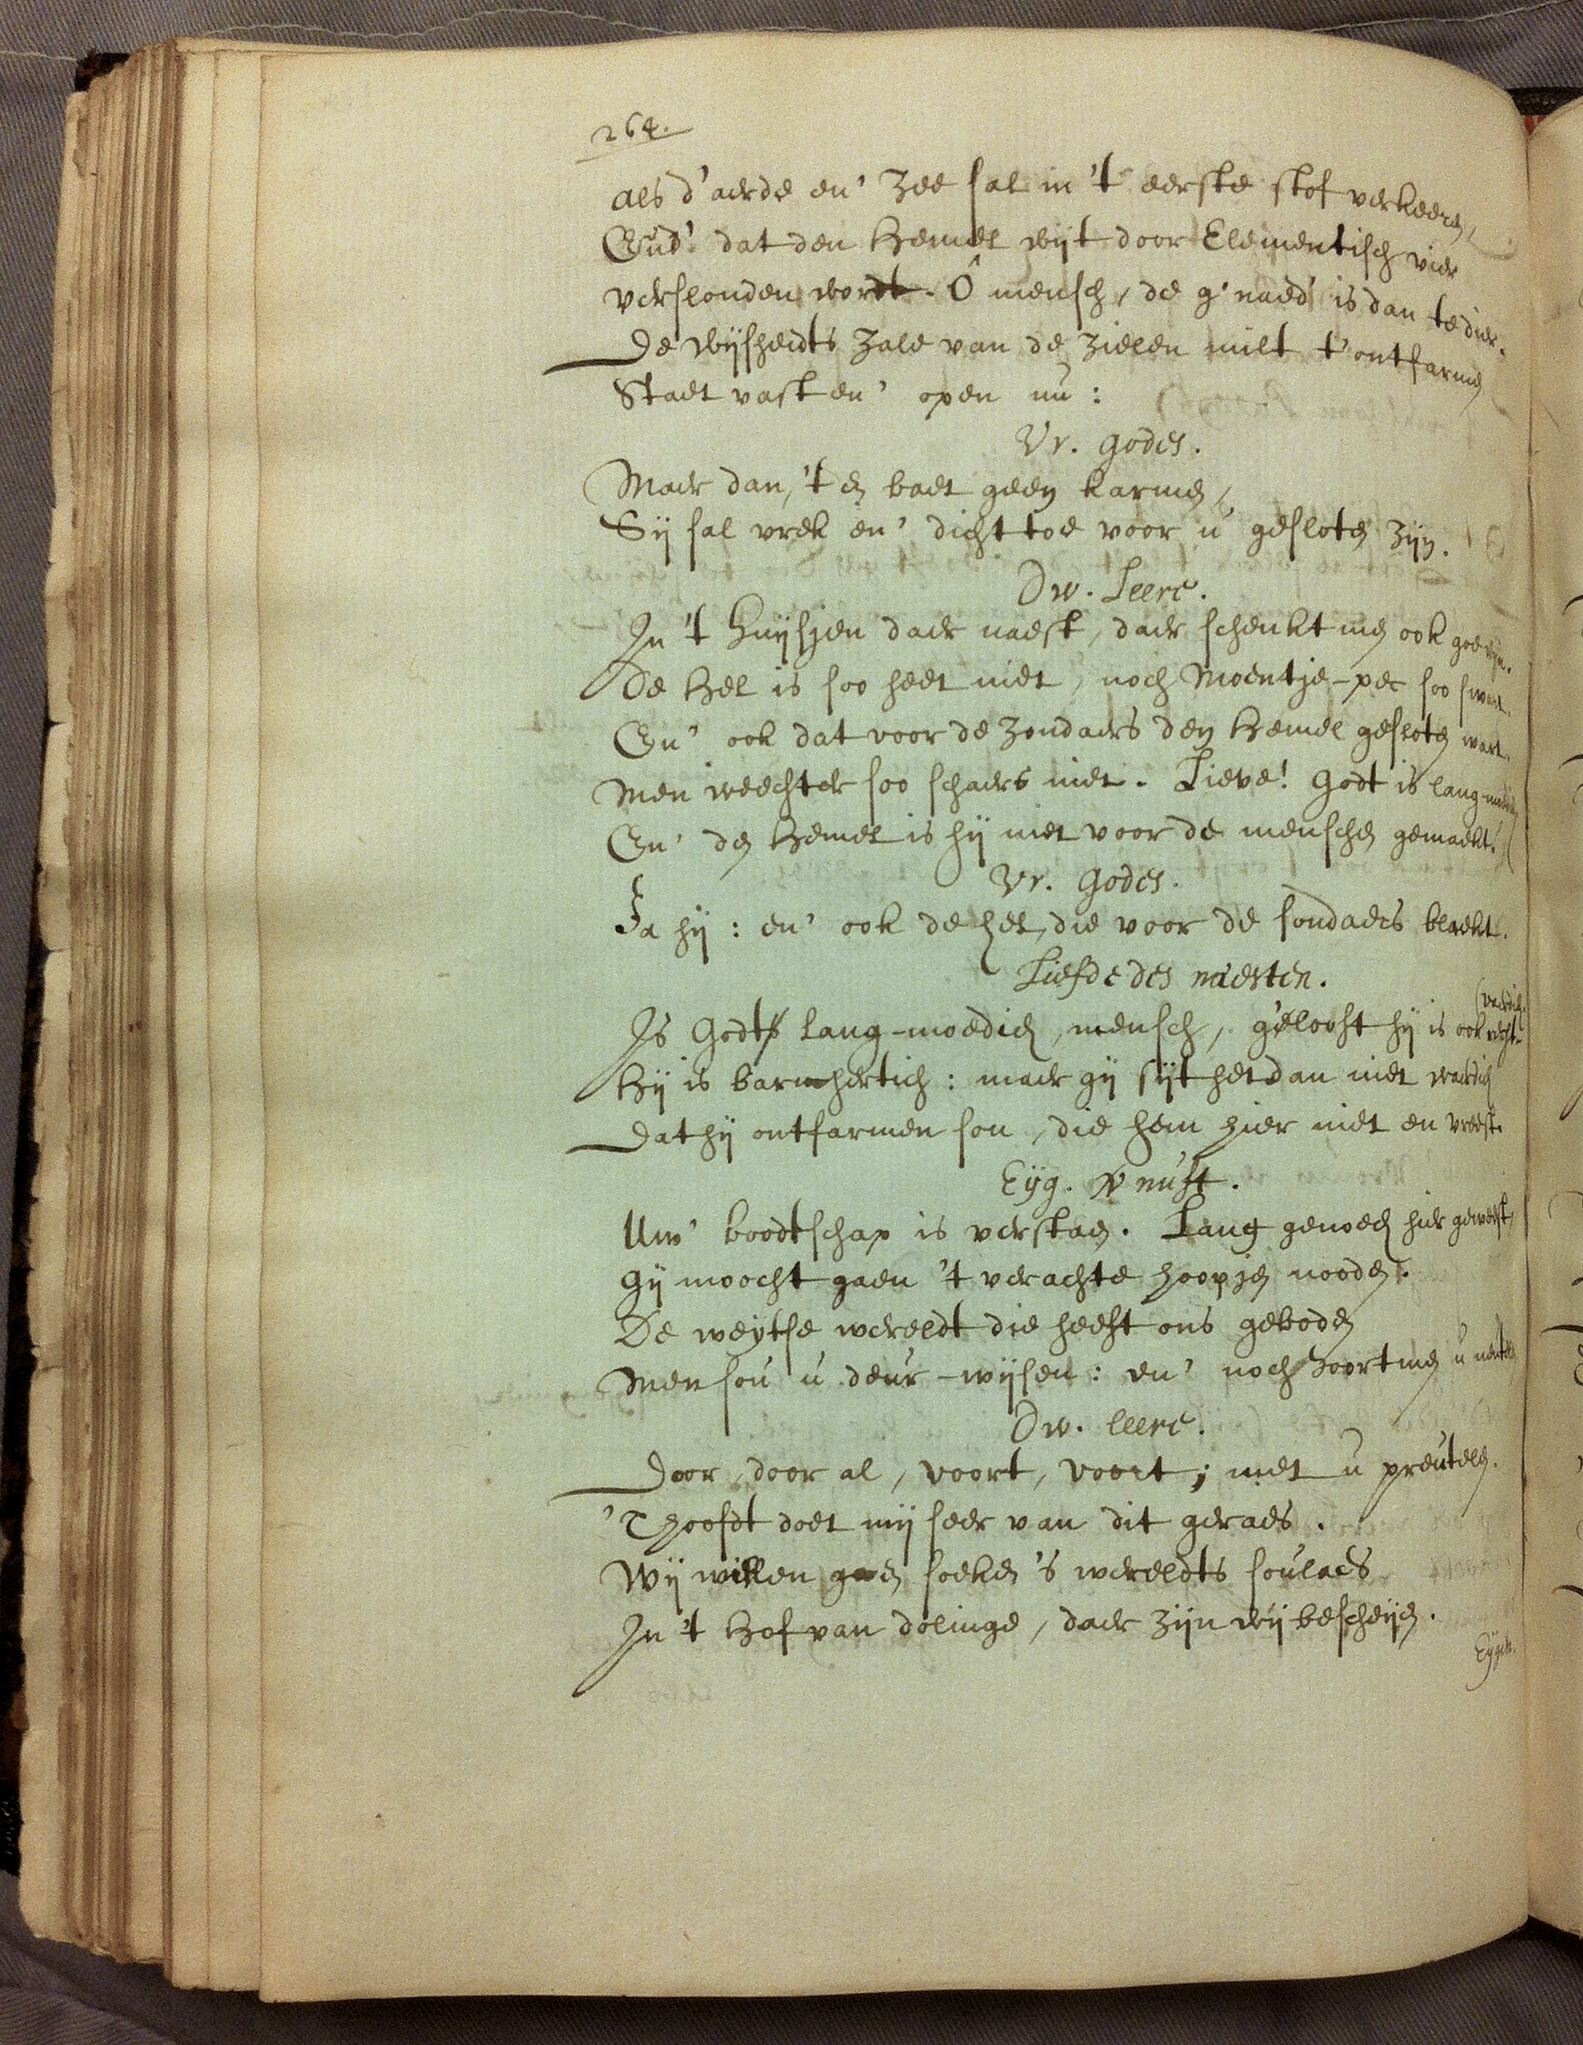 264.
als d'aerde en' Zee sal in 't eerste stof verkeeren,
End' dat den Hemel wijt door Elementisch vier
verslonden wordt. Ô mensch, de g'naed' is dan te dier.
De wijsheidts Zale van de Zielen milt t'ontfarmen
Staet vast en' open nu:
Vr. Godes.
Maer dan, 't en baet geen karmen,
Sij sal vrek en' dicht toe voor u gesloten zijn.
Dw. Leere.
In 't huijsjen daer naest, daer schenkt men ook goe wijn.
De Hel is soo heet niet, noch Moentje-pec soo swart.
En' ook dat voor de Zondaers den Hemel gesloten wart.
Men weechter soo schaers niet. Lieve! Godt is lang-
En' den Hemel is hij niet voor de menschen gemaekt?
Vr. Godes.
Ja hij: en' ook de hel, die voor de sondaers blaekt.
Liefde des naesten.
(vaerdich.
Is Godt lang-moedich, mensch, g'elooft hij is ook recht-
Hij is barmhertich: maer gij sijt het dan niet waerdich
Dat hij ontfarmen sou, die hem hier niet en vreest.
Eijg. nust.
Uw' boodtschap is verstaen. Lang genoech hier geweest,
Gij moocht gaen 't verachte hoopjen nooden.
De weytse wereldt die heeft ons geboden
Men sou u deur-wijsen: en' noch hoort men u
Dw. leere.
Door, door al, voort, voort; niet u preutelen.
'T hoofdt doet mij seer van dit geraes.
Wij willen gaen soeken 's wereldts soulaes
In 't Hof van dolinge, daer zijn wij bescheijen.
Eijgen.